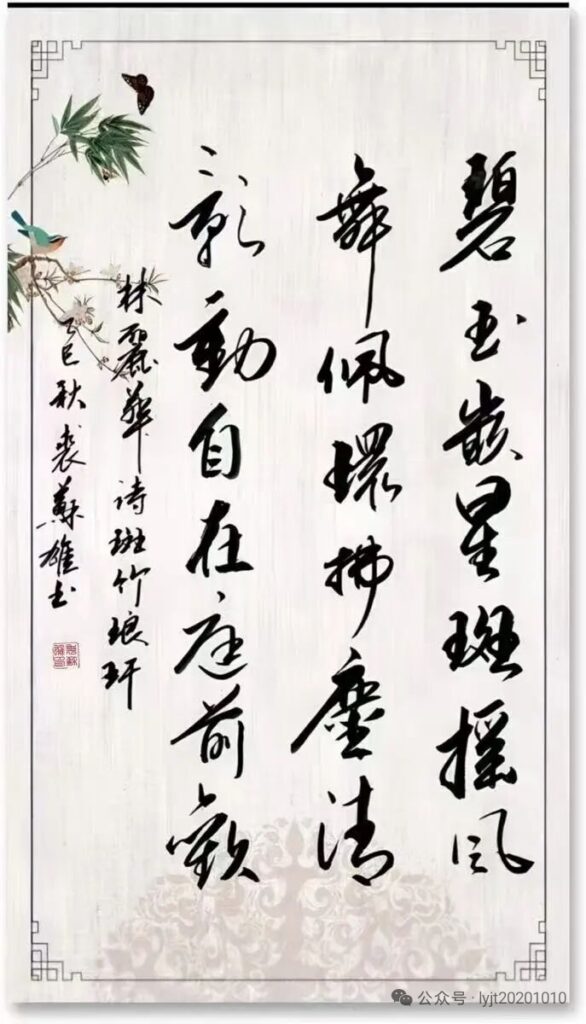 碧玉嵌星斑摇风
舞佩環拂塵清
影動自在庭前歡
林麗華诗斑竹琅玕
乙巳秋裘蘇雄书
公众号 · lyjt20201010